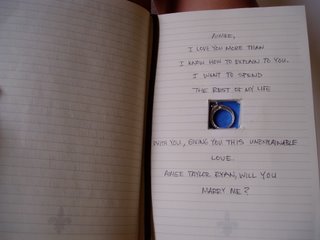 AIMEE,
I LOVE YOU MORE THAN
I KNOW HOW TO EXPLAIN TO YOU.
I WANT TO SPEND
THE REST OF MY LIFE
WITH YOU, GIVING YOU THIS UNEXPLAINABLE
LOVE.
AIMEE TAYLOR RYAN, WILL YOU
MARRY ME?